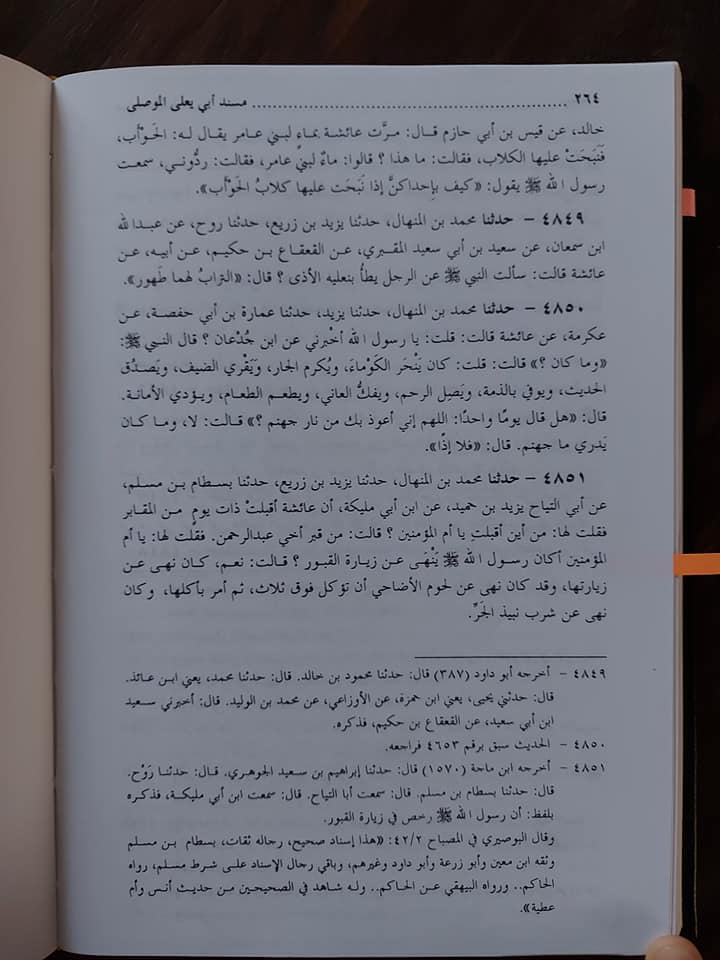 ٢٦٤ ................................................ مسند أبي يعلى الموصلي
خالد، عن قيس بن أبي حازم قال: مرَّت عائشة بماءٍ لبني عامر يقال له: الحَوْأب،
فَنَبَحَتْ عليها الكلاب، فقالت: ما هذا ؟ قالوا: ماءٌ لبني عامر، فقالت: ردُّوني، سمعت
رسول الله ﷺ يقول: «كيف بإحداكنَّ إذا نَبَحَت عليها كلابُ الحَوْأب».
٤٨٤٩ – حدثنا محمد بن المنهال، حدثنا يزيد بن زريع، حدثنا روح، عن عبدالله
ابن سمعان، عن سعيد بن أبي سعيد المقبري، عن القعقاع بن حكيم، عن أبيه، عن
عائشة قالت: سألت النبي ﷺ عن الرجل يطأُ بنعليه الأذى ؟ قال: «الترابُ لهما طَهور».
٤٨٥٠ – حدثنا محمد بن المنهال، حدثنا يزيد، حدثنا عمارة بن أبي حفصة، عن
عكرمة، عن عائشة قالت: قلت: يا رسول الله أخْبرني عن ابن جُدْعان ؟ قال النبي ﷺ:
«وما كان ؟» قالت: قلت: كان يَنْحَر الكَوْماءَ، ويُكرم الجار، وَيَقْري الضيف، ويَصدُق
الحديث، ويوفي بالذمة، ويَصِل الرحم، ويفكُّ العاني، ويطعم الطعام، ويؤدي الأمانة.
قال: «هل قال يومًا واحدًا: اللهم إني أعوذ بك من نار جهنم ؟» قالت: لا، وما كان
يَدري ما جهنم. قال: «فلا إذًا».
٤٨٥١ – حدثنا محمد بن المنهال، حدثنا يزيد بن زريع، حدثنا بسطام بن مسلم،
عن أبي التياح يزيد بن حميد، عن ابن أبي مليكة، أن عائشة أقبلتْ ذات يومٍ من المقابر
فقلت لها: من أين أقبلتِ يا أم المؤمنين ؟ قالت: من قبر أخي عبدالرحمن. فقلت لها: يا أم
المؤمنين أكان رسول الله ﷺ يَنْهَى عن زيارة القبور ؟ قالت: نعم، كان نهى عن
زيارتها، وقد كان نهى عن لحوم الأضاحي أن تؤكل فوق ثلاث، ثم أمر بأكلها، وكان
نهى عن شرب نبيذ الجَرِّ.
٤٨٤٩ – أخرجه أبو داود (٣٨٧) قال: حدثنا محمود بن خالد. قال: حدثنا محمد، يعني ابن عائذ.
قال: حدثني يحيى، يعني ابن حمزة، عن الأوزاعي، عن محمد بن الوليد. قال: أخبرني سعيد
ابن أبي سعيد، عن القعقاع بن حكيم، فذكره.
٤٨٥٠ – الحديث سبق برقم ٤٦٥٣ فراجعه.
٤٨٥١ – أخرجه ابن ماجة (١٥٧٠) قال: حدثنا إبراهيم بن سعيد الجوهري. قال: حدثنا رَوْح.
قال: حدثنا بسطام بن مسلم. قال: سمعت أبا التياح. قال: سمعت ابن أبي مليكة، فذكره
بلفظ: أن رسول الله ﷺ رخص في زيارة القبور.
وقال البوصيري في المصباح ٤٢/٢: «هذا إسناد صحيح، رجاله ثقات، بسطام بن مسلم
وثقه ابن معين وأبو زرعة وأبو داود وغيرهم، وباقي رجال الإسناد على شرط مسلم، رواه
الحاكم.. ورواه البيهقي عن الحاكم.. وله شاهد في الصحيحين من حديث أنس وأم
عطية».